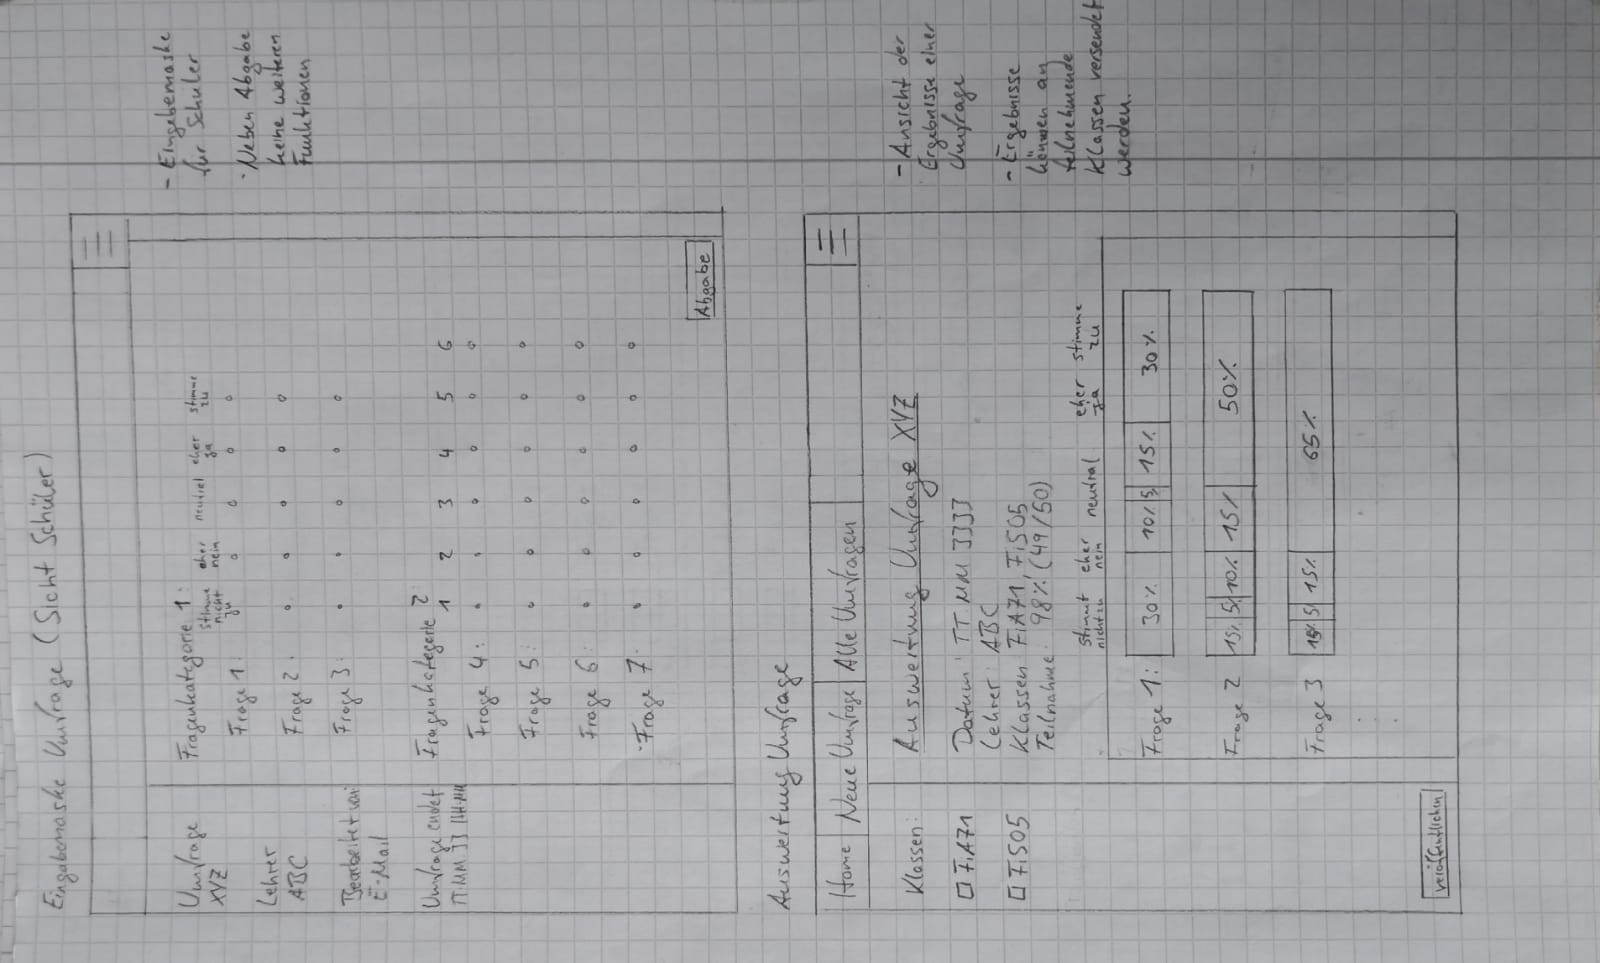 Eingabemaske Umfrage (Sicht Schüler)
Umfrage
XYZ
Lehrer
ABC
Bearbeitet von
E-Mail
Umfrage endet
TT.MM.JJ HH:MM
Fragenkategorie 1:
stimme nicht zu
eher nein
neutral
eher ja
stimme zu
Frage 1:
Frage 2:
Frage 3:
Fragenkategorie 2:
1 2 3 4 5 6
Frage 4:
Frage 5:
Frage 6:
Frage 7:
Abgabe
- Eingebemaske
für Schüler
- Neben Abgabe
keine weiteren
Funktionen
Auswertung Umfrage
Home
Neue Umfrage
Alle Umfragen
Klassen:
FiA71
FiS05
veröffentlichen
Auswertung Umfrage XYZ
Datum: TT MM JJJJ
Lehrer: ABC
Klassen FiA71, FiS05
Teilnahme: 98% (49/50)
stimmt nicht zu
eher nein
neutral
eher ja
stimme zu
Frage 1: 30% 10% 5% 15% 30%
Frage 2 15% 5% 10% 15% 50%
Frage 3 15% 5% 15% 65%
- Ansicht der
Ergebnisse einer
Umfrage
- Ergebnisse
können an
teilnehmende
Klassen versendet
werden.